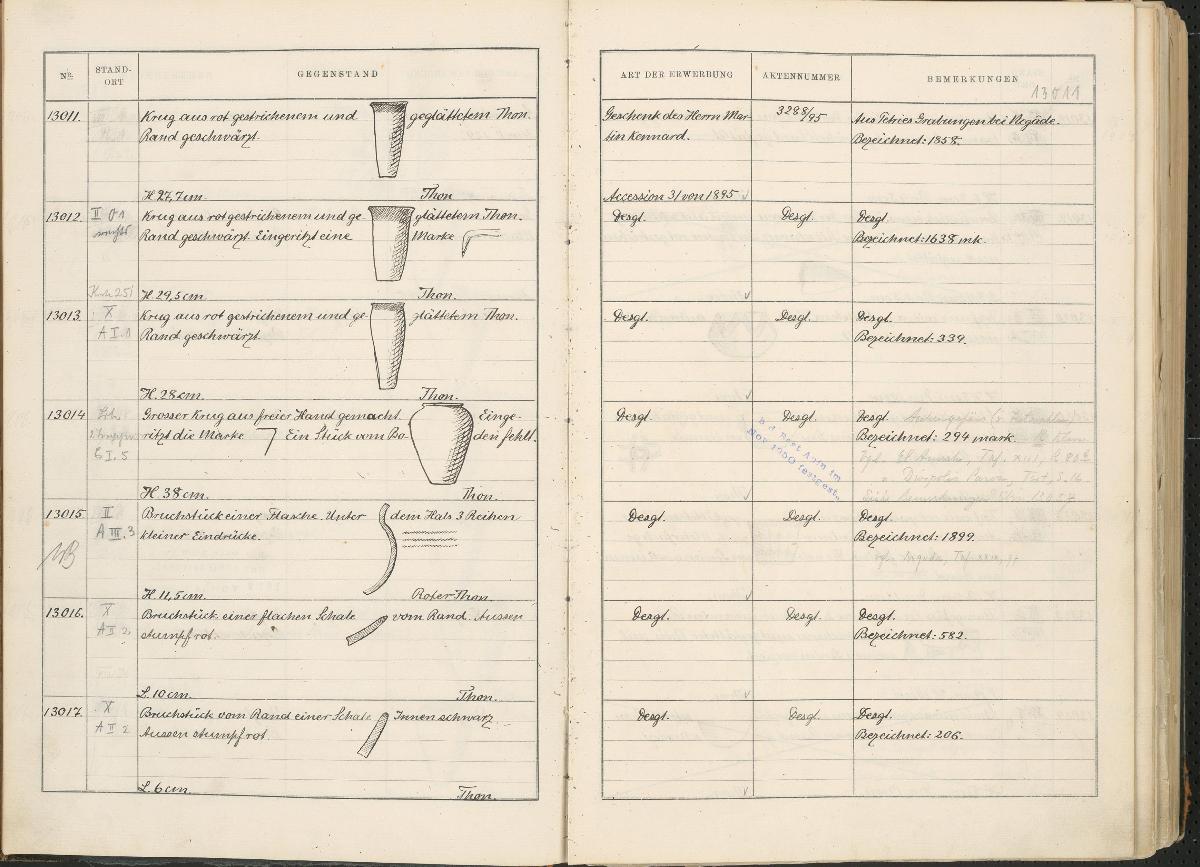 No. STAND- ORT GEGENSTAND
ART DER ERWERBUNG AKTENNUMMER BEMERKUNGEN
13011
13011. Krug aus rot gestrichenem und geglättetem Thon.
Rand geschwärzt.
H. 27,7 cm. Thon
Geschenk des Herrn Mar- 3288/95 Aus Petries Grabungen bei Negâde.
tin Kennard. Bezeichnet: 1858.
Accession 31 von 1895
13012. II Krug aus rot gestrichenem und ge- glättetem Thon.
rechts Rand geschwärzt. Eingeritzt eine Marke
H. 29,5 cm. Thon.
Desgl. Desgl. Desgl.
Bezeichnet: 1638 mk.
13013. X Krug aus rot gestrichenem und ge- glättetem Thon.
A I.1 Rand geschwärzt.
H. 28 cm. Thon.
Desgl. Desgl. Desgl.
Bezeichnet: 339.
13014 Grosser Krug aus freier Hand gemacht. Einge-
ritzt die Marke Ein Stück vom Bo- den fehlt.
I.5
H. 38 cm. Thon.
Desgl. Desgl. Desgl.
Bezeichnet: 294 mark.
Vgl. El Amrah, Taf. XIII,
Diospolis Parva, Text, S. 16
b. d. Rest. Aufn. im
Nov. 1960 festgest.
13015 II Bruchstück einer Flasche. Unter dem Hals 3 Reihen
A III.3 kleiner Eindrücke.
NB
H. 11,5 cm. Roter Thon.
Desgl. Desgl. Desgl.
Bezeichnet: 1899.
13016. X Bruchstück einer flachen Schale vom Rand. Aussen
A II 2 stumpf rot.
L. 10 cm. Thon.
Desgl. Desgl. Desgl.
Bezeichnet: 582.
13017. X Bruchstück vom Rand einer Schale Innen schwarz
A II 2 Aussen stumpf rot.
L. 6 cm. Thon.
Desgl. Desgl. Desgl.
Bezeichnet: 206.